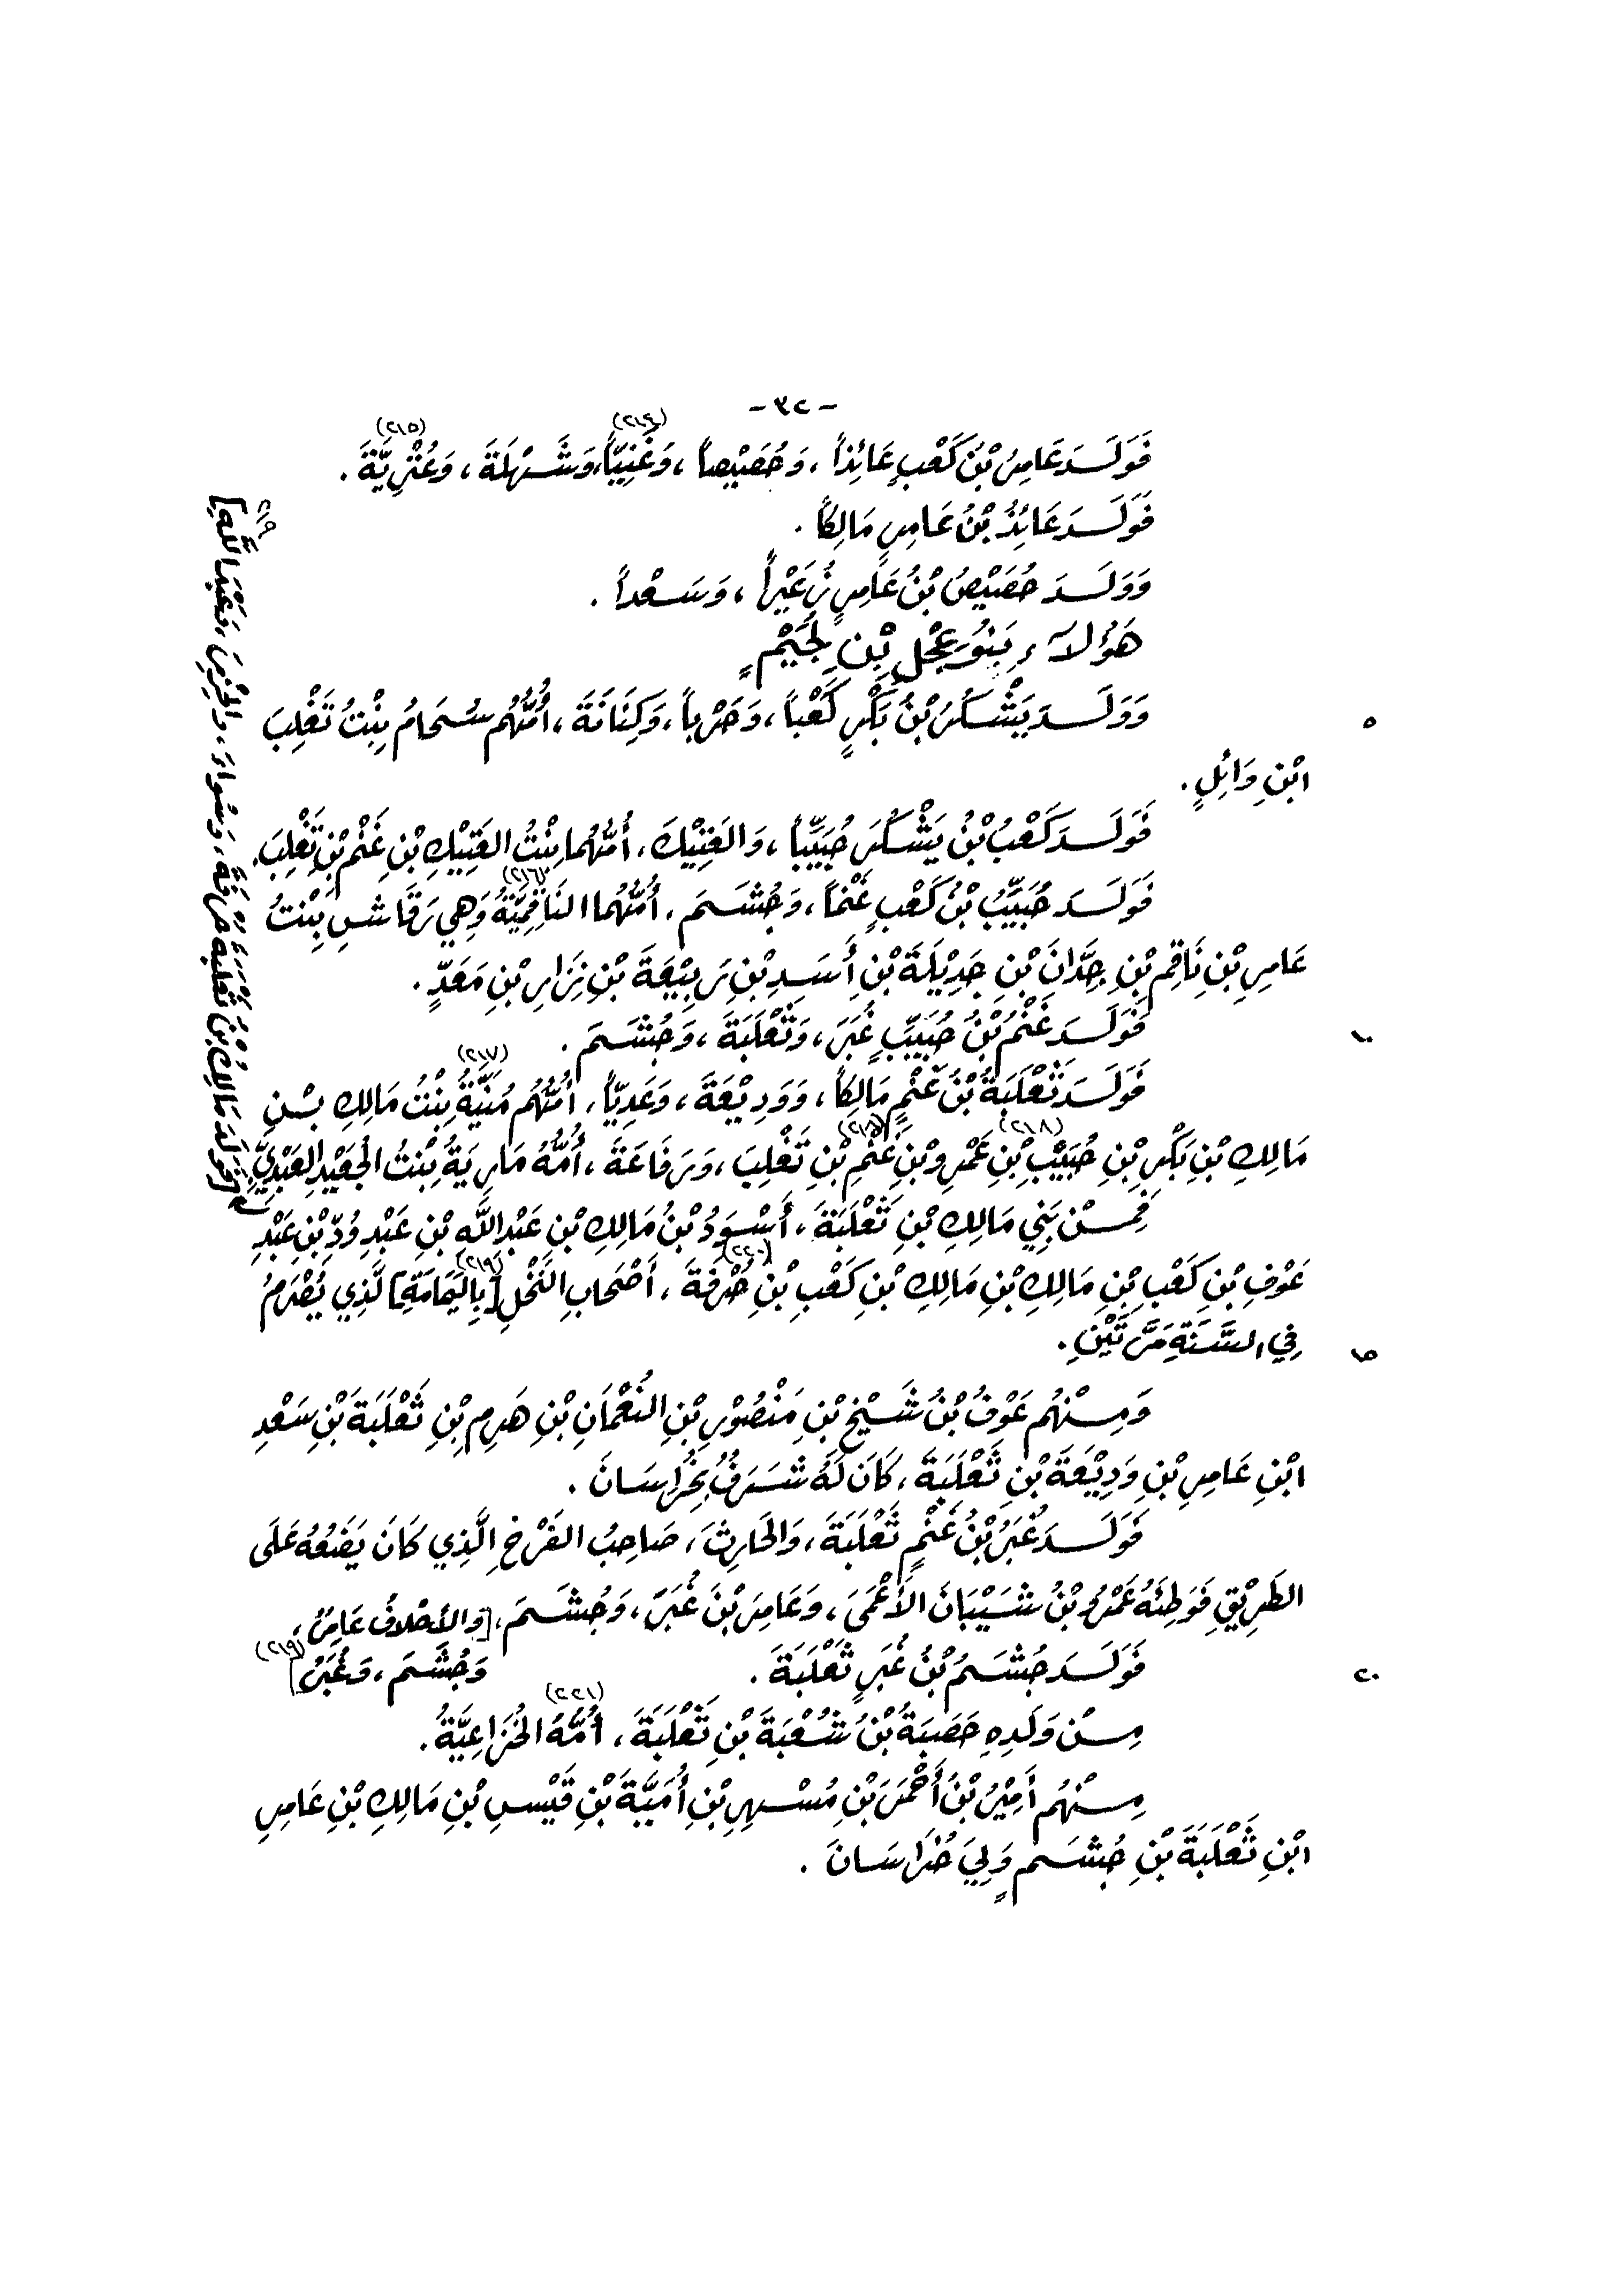 - ٣٢ -
فَوَلَدَ عَامِرُ بْنُ كَعْبٍ عَائِذاً ، وَحُصَيْصاً ، وَغَنِيّاً (٢١٤) ، وَشَهْلَةَ ، وَعُتْرِيَّةَ (٢١٥) .
فَوَلَدَ عَائِذُ بْنُ عَامِرٍ مَالِكاً .
وَوَلَدَ حُصَيْصُ بْنُ عَامِرٍ زُعَيْراً ، وَسَعْداً .
هَؤُلاَءِ بَنُو عِجْلِ بْنِ لُجَيْمٍ
٥ وَوَلَدَ يَشْكُرُ بْنُ بَكْرٍ كَعْباً ، وَحَرْباً ، وَكِنَانَةَ ، أُمُّهُم سُحَامُ بِنْتُ تَغْلِبَ
ابْنِ وَائِلٍ .
فَوَلَدَ كَعْبُ بْنُ يَشْكُرَ حُبَيِّباً ، وَالعَتِيْكَ ، أُمُّهُما بِنْتُ العَتِيْكِ بْنِ غَنْمِ بْنِ تَغْلِبَ .
فَوَلَدَ حُبَيِّبُ بْنُ كَعْبٍ غَنْماً ، وَجُشَمَ ، أُمُّهُما النَاقِمِيَّةُ (٢١٦) وَهِي رَقَاشِ بِنْتُ
عَامِرِ بْنِ نَاقِمِ بْنِ جِدَّانَ بْنِ جَدِيْلَةَ بْنِ أَسَدِ بْنِ رَبِيْعَةَ بْنِ نِزَارِ بْنِ مَعَدٍّ .
١٠ فَوَلَدَ غَنْمُ بْنُ حُبَيِّبٍ غُبَرَ ، وَثَعْلَبَةَ ، وَجُشَمَ .
فَوَلَدَ ثَعْلَبَةُ بْنُ غَنْمٍ مَالِكاً ، وَوَدِيْعَةَ ، وَعَدِيّاً ، أُمُّهُم مُنَيَّةُ (٢١٧) بِنْتُ مَالِكِ بْنِ
مَالِكِ بْنِ بَكْرِ بْنِ حُبَيْبِ (٢١٨) بْنِ عَمْرِو بْنِ غَنْمِ (٢١٨) بْنِ تَغْلِبَ ، وَرِفَاعَةَ ، أُمُّهُ مَارِيَةُ بِنْتُ الجُعَيْدِ العَبْدِيِّ
[فَوَلَدَ مَالِكُ بْنُ ثَعْلَبَةَ حُرْفَةَ ، وَسُواءَ ، وَالحُرَّ ، وَعَبْدَ اللَّهِ] ٢١٩
فَمِنْ بَنِي مَالِكِ بْنِ ثَعْلَبَةَ ، أَسْوَدُ بْنُ مَالِكِ بْنِ عَبْدِ اللَّهِ بْنِ عَبْدِ وُدِّ بْنِ عَبْدِ
عَوْفِ بْنِ كَعْبِ بْنِ مَالِكِ بْنِ مَالِكِ بْنِ كَعْبِ بْنِ حُرْفَةَ (٢٢٠) ، أَصْحَابِ النَّخْلِ [بِاليَمَامَةِ] (٢١٩) الَّذِي يُصْرَمُ
١٥ فِي السَّنَةِ مَرَّتَيْنِ .
وَمِنْهُم عَوْفُ بْنُ شَيْخِ بْنِ مَنْصُوْرِ بْنِ النُعْمَانِ بْنِ هَرِمِ بْنِ ثَعْلَبَةَ بْنِ سَعْدِ
ابْنِ عَامِرِ بْنِ وَدِيْعَةَ بْنِ ثَعْلَبَةَ ، كَانَ لَهُ شَرَفٌ بِخُرَاسَانَ .
فَوَلَدَ غُبَرُ بْنُ غَنْمٍ ثَعْلَبَةَ ، وَالحَارِثَ ، صَاحِبُ الفَرْخِ الَّذِي كَانَ يَضَعُهُ عَلَى
الطَرِيْقِ فَوَطِئَهُ عَمْرُو بْنُ شَيْبَانَ الأَعْمَى ، وَعَامِرَ بْنَ غُبَرَ ، وَجُشَمَ ، [وَالأَحْلافُ عَامِرٌ ،
وَجُشَمَ ، وَغُبَرُ] (٢١٩)
٢٠ فَوَلَدَ جُشَمُ بْنُ غُبَرٍ ثَعْلَبَةَ .
مِنْ وَلَدِهِ حَصَبَةُ بْنُ شُعْبَةَ بْنِ ثَعْلَبَةَ ، أُمُّهُ (٢٢١) الخُزَاعِيَّةُ .
مِنْهُم أَمِيْرُ بْنُ أَحْمَرَ بْنِ مُسْهِرِ بْنِ أُمَيَّةَ بْنِ قَيْسِ بْنِ مَالِكِ بْنِ عَامِرِ
ابْنِ ثَعْلَبَةَ بْنِ جُشَمٍ وَلِيَ خُرَاسَانَ .